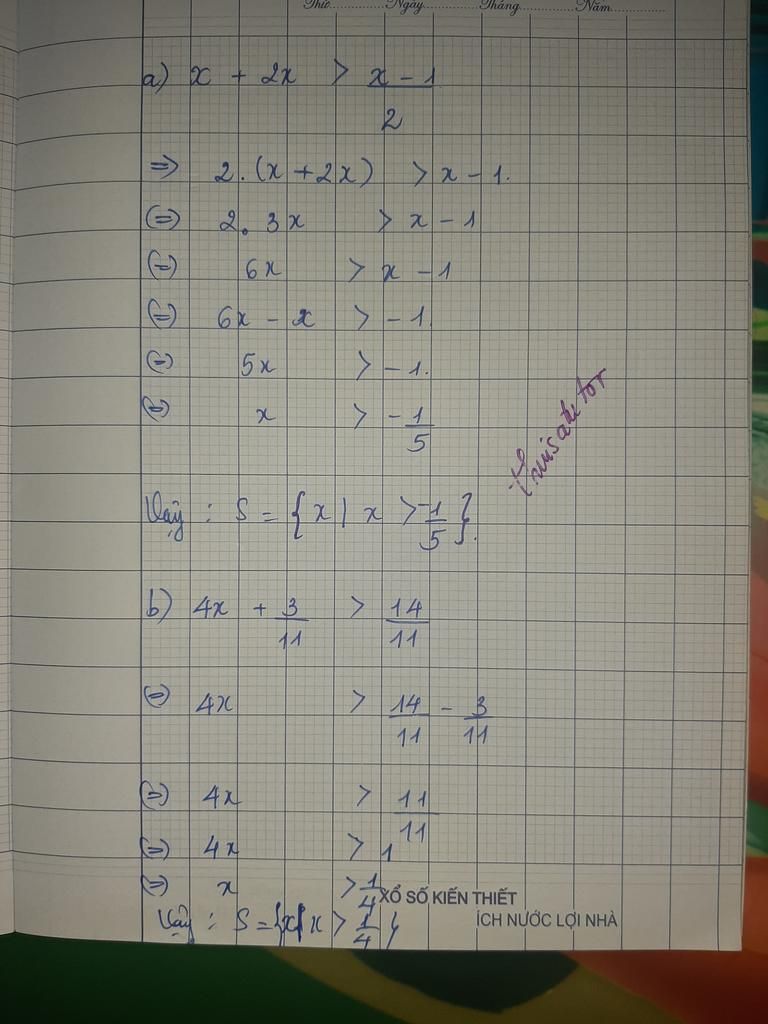 Thứ Ngày Tháng Năm
a) x + 2x > \frac{x - 1}{2}
=> 2.(x + 2x) > x - 1.
(=) 2. 3x > x - 1
(=) 6x > x - 1
(=) 6x - x > - 1.
(=) 5x > - 1.
(=) x > - \frac{1}{5}
Vậy : S = { x | x > \frac{-1}{5} }.
b) 4x + \frac{3}{11} > \frac{14}{11}
(=) 4x > \frac{14}{11} - \frac{3}{11}
(=) 4x > \frac{11}{11}
(=) 4x > 1
(=) x > \frac{1}{4}
XỔ SỐ KIẾN THIẾT
Vậy : S = {x| x > \frac{1}{4} }
ÍCH NƯỚC LỢI NHÀ